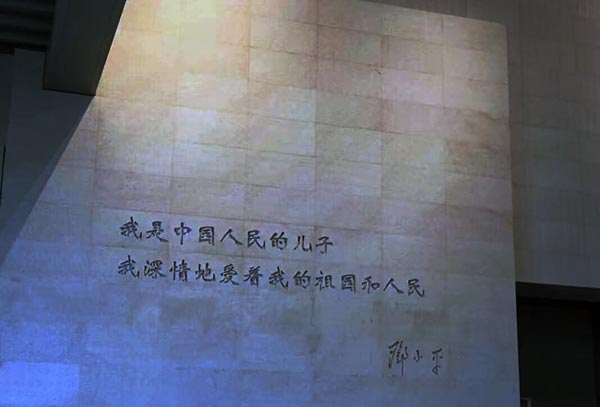 我是中国人民的儿子
我深情地爱着我的祖国和人民
邓小平